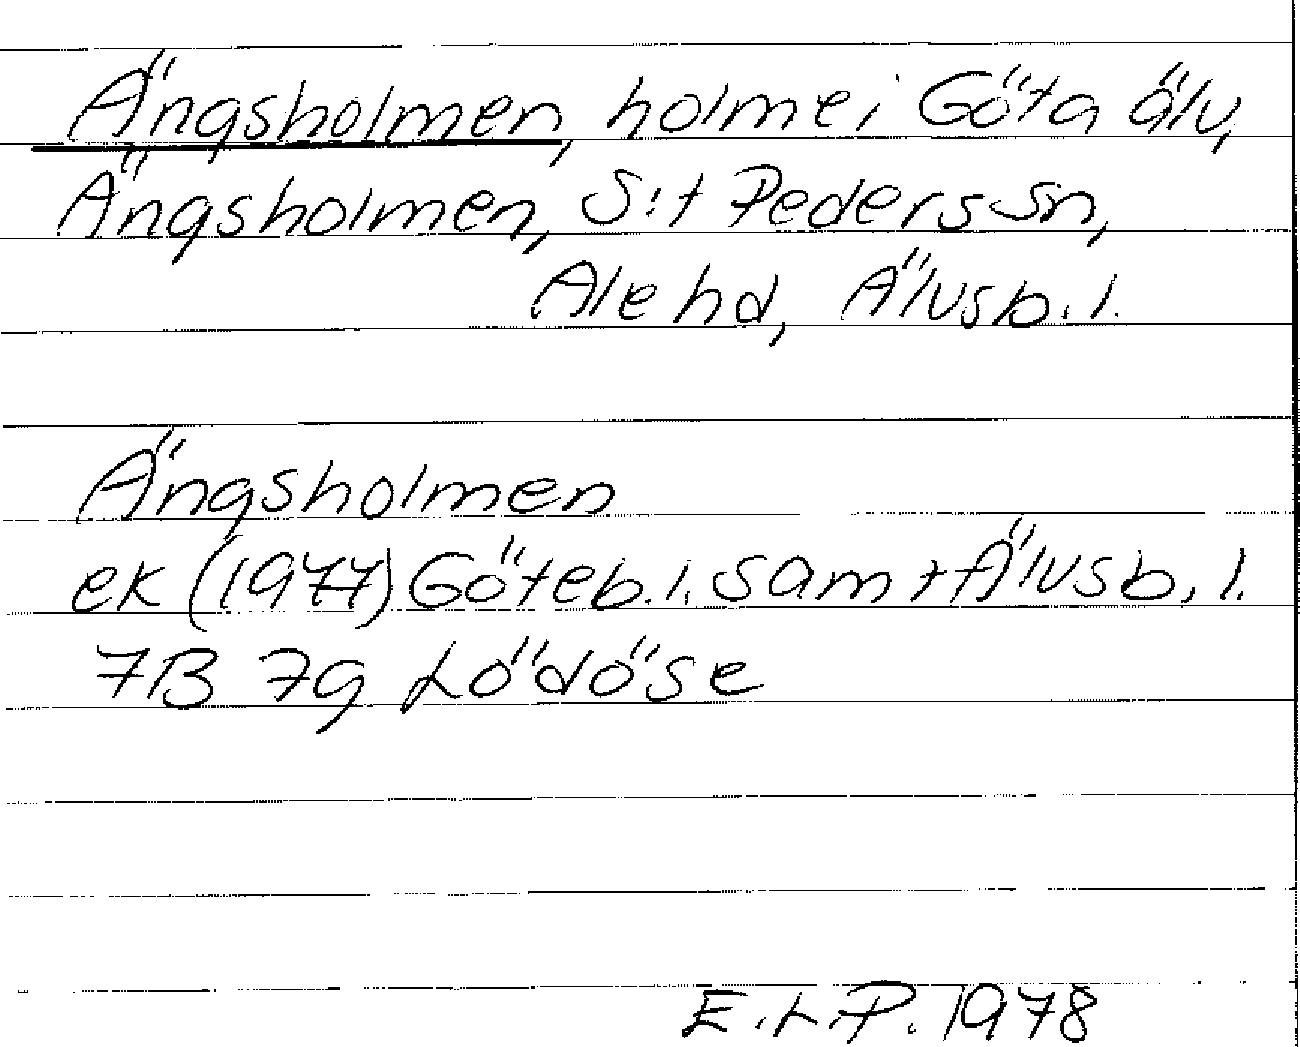 Ängsholmen, holme i Göta älv,
Ängsholmen, S:t Peders sn,
Ale hd, Älvsb. l.
Ängsholmen
ek (1977) Göteb. l. samt Älvsb. l.
7B 7g Lödöse
E.L.P. 1978